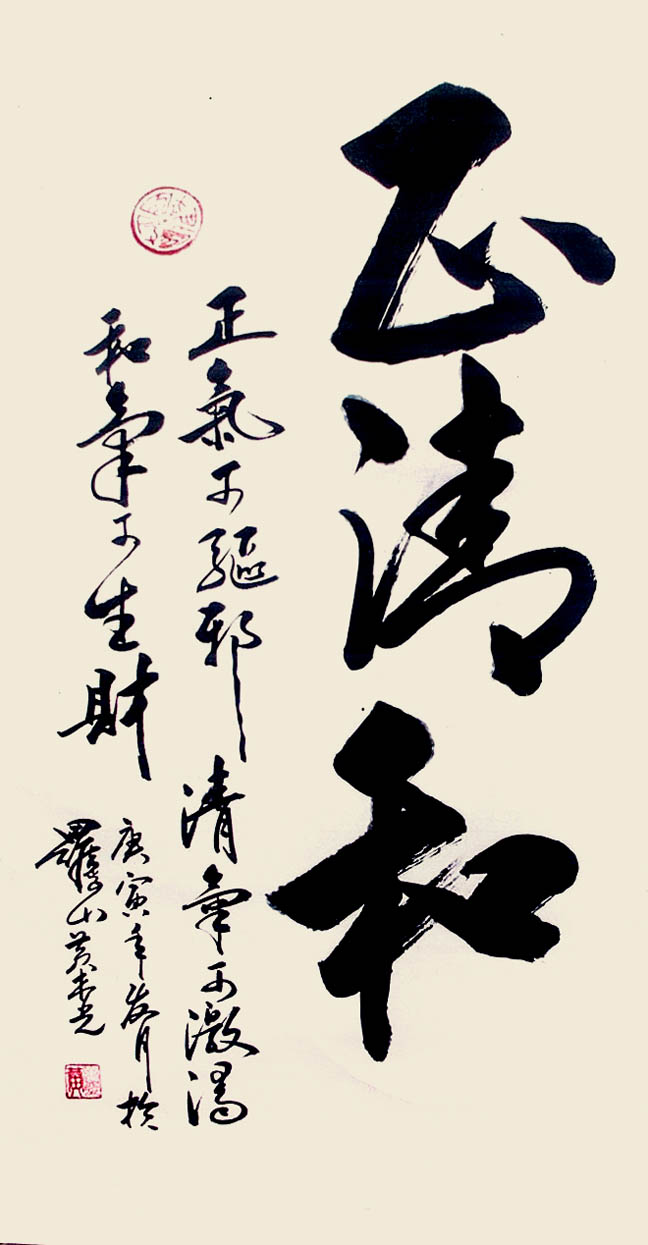 正清和
正氣可驅邪清氣可澂濁
和氣可生財
庚寅年 月於
羅山黃 光